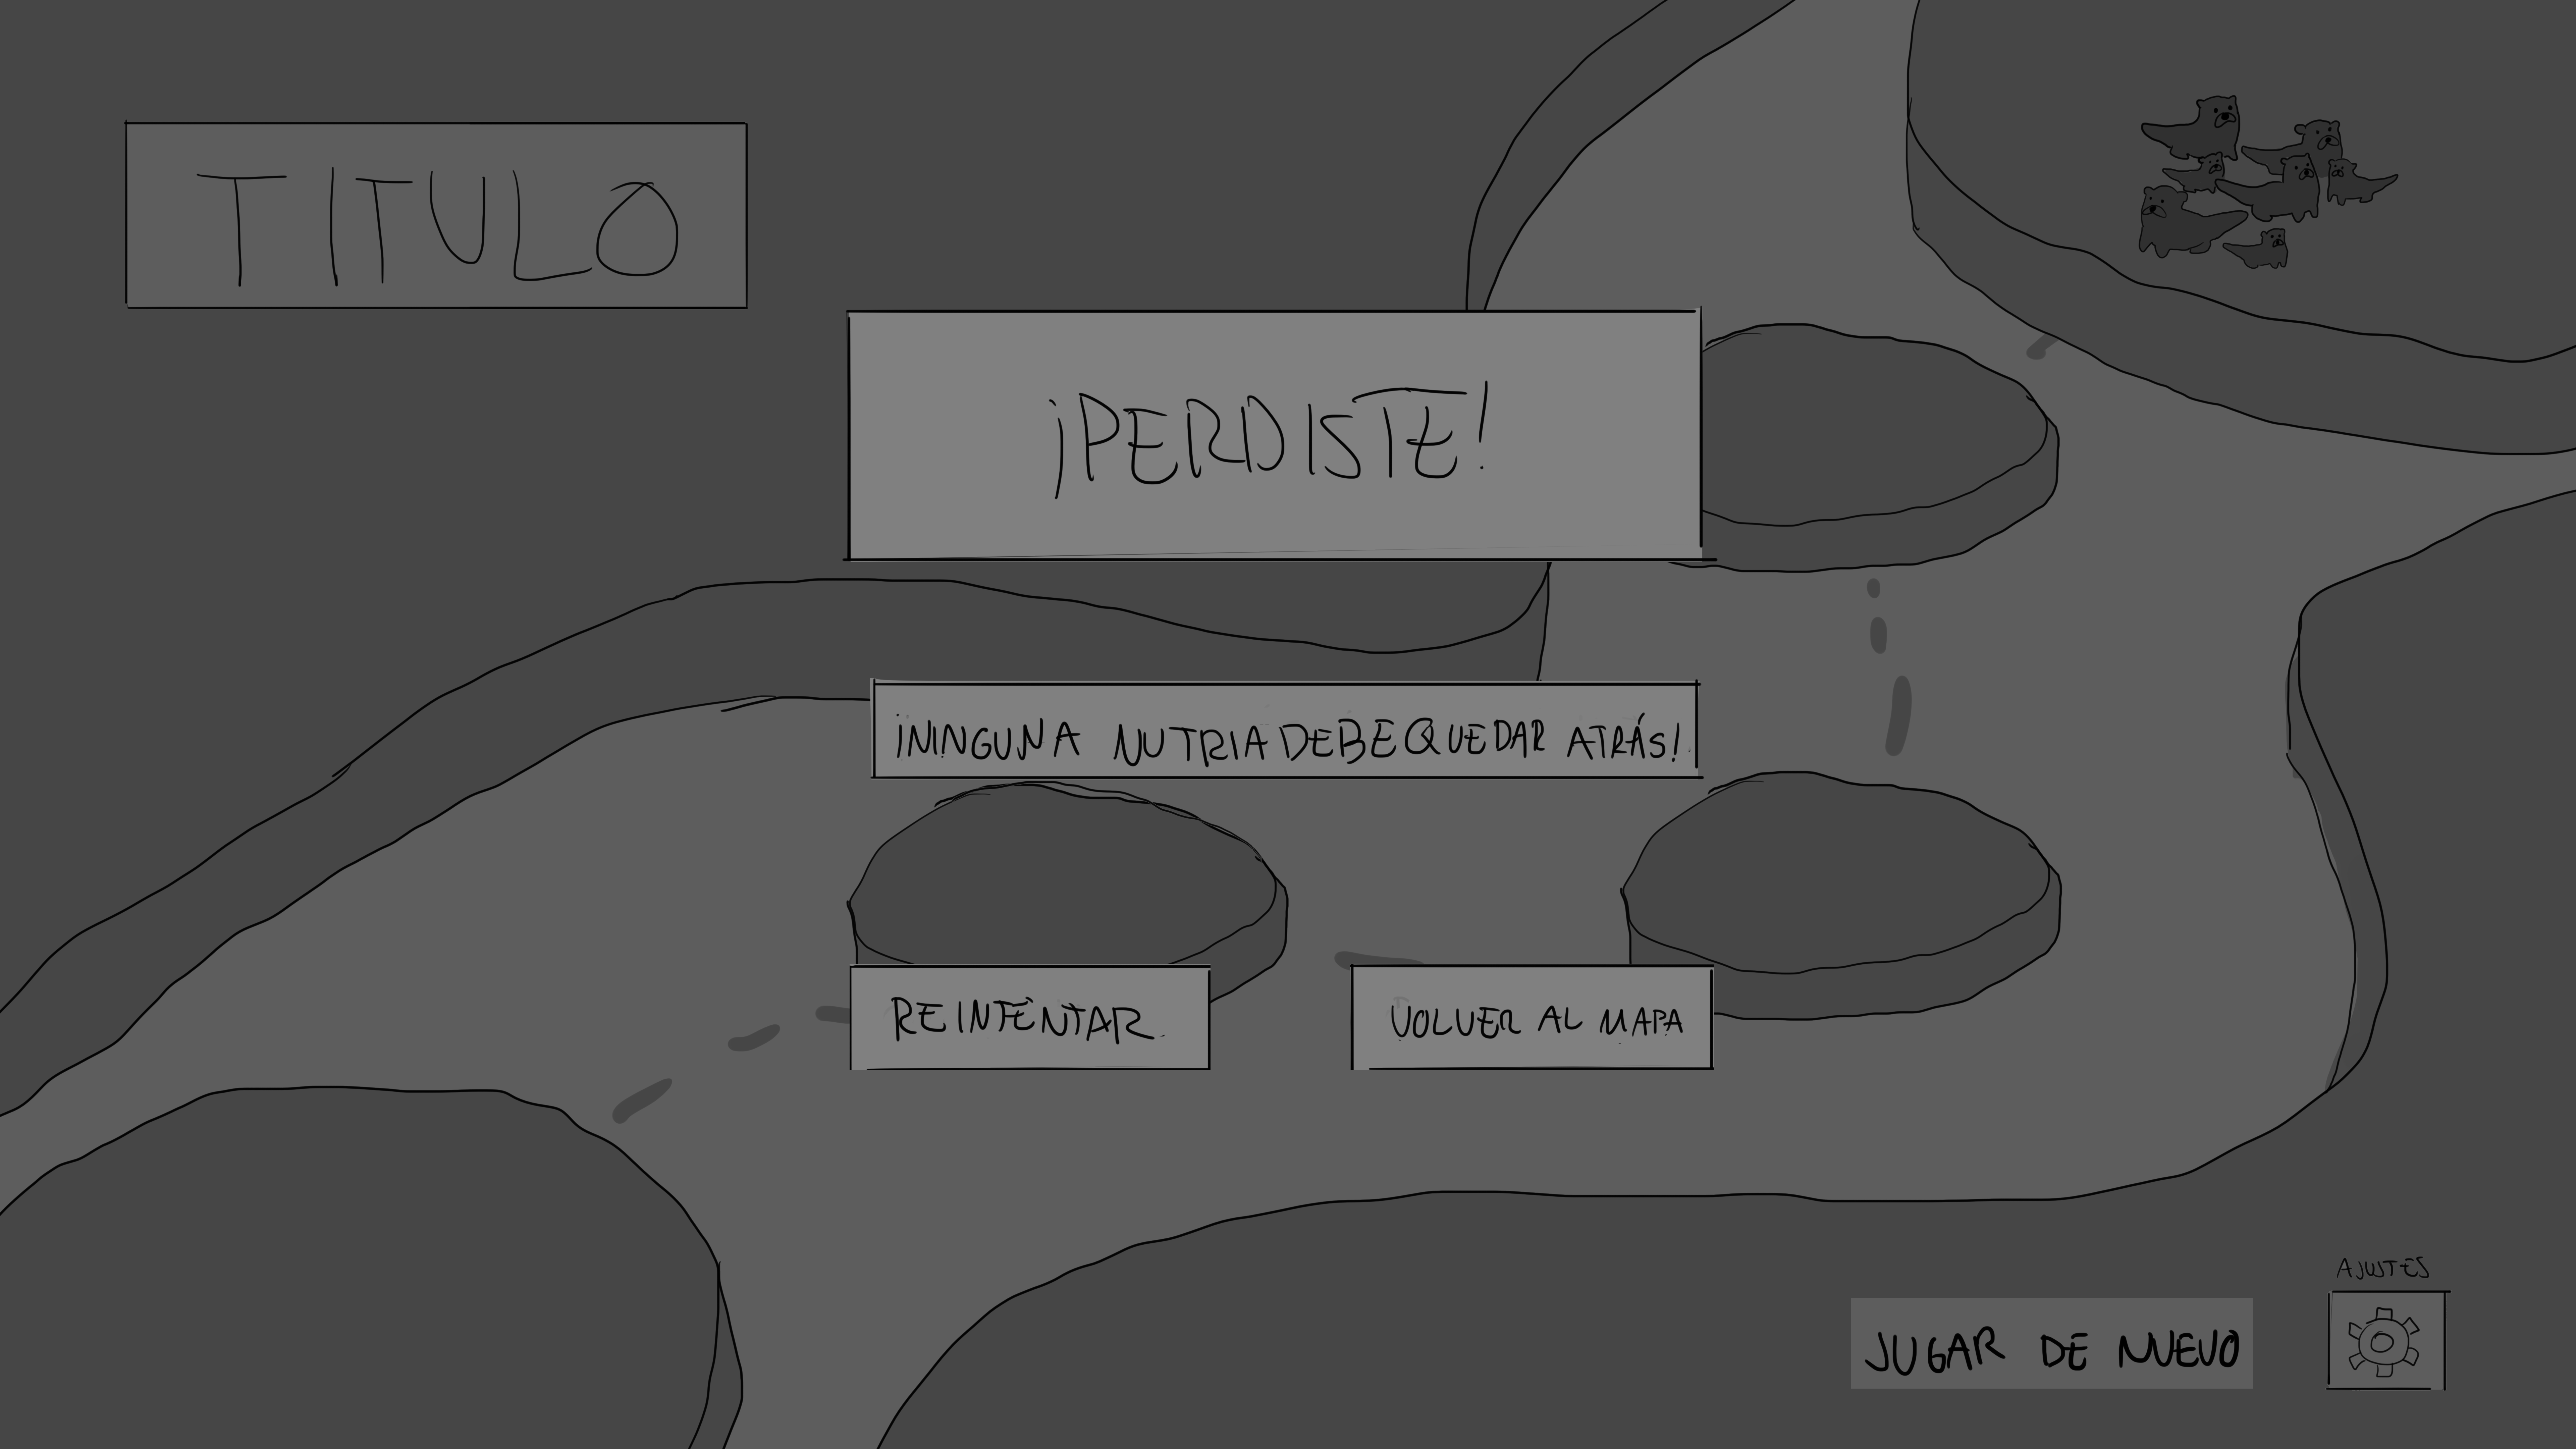 TITULO
¡PERDISTE!
¡NINGUNA NUTRIA DEBE QUEDAR ATRÁS!
REINTENTAR
VOLVER AL MAPA
AJUSTES
JUGAR DE NUEVO